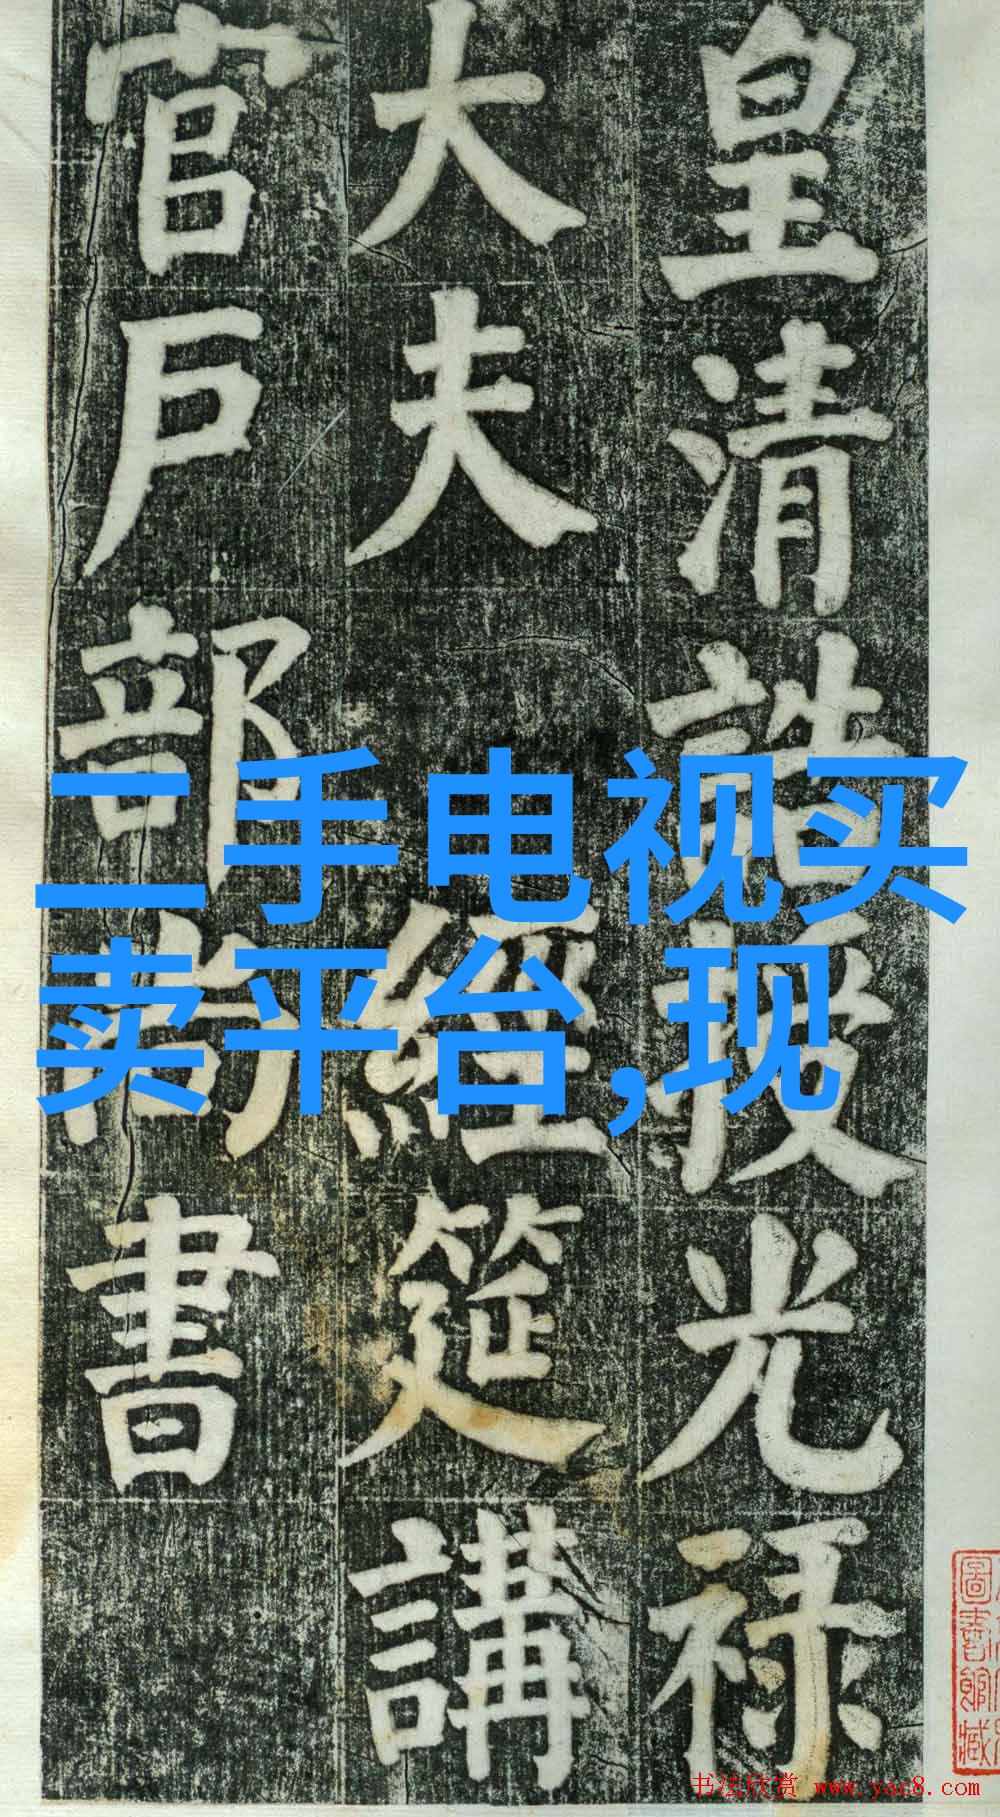 皇清誥授光禄
大夫 經筵講
官戶部尚書
二手电视买
卖平台,现
書法欣赏 www.yac8.com